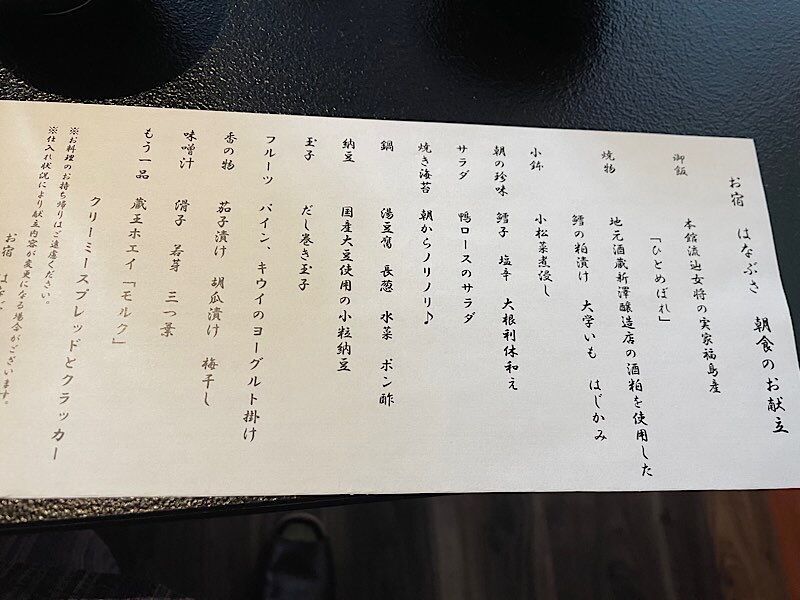 お宿 はなぶさ 朝食のお献立
御飯 本館流辿女将の実家福島産
「ひとめぼれ」
焼物 地元酒蔵新澤醸造店の酒粕を使用した
鱈の粕漬け 大学いも はじかみ
小鉢 小松菜煮浸し
朝の珍味 鱈子 塩辛 大根利休和え
サラダ 鴨ロースのサラダ
焼き海苔 朝からノリノリ♪
鍋 湯豆腐 長葱 水菜 ポン酢
納豆 国産大豆使用の小粒納豆
玉子 だし巻き玉子
フルーツ パイン、キウイのヨーグルト掛け
香の物 茄子漬け 胡瓜漬け 梅干し
味噌汁 滑子 若芽 三つ葉
もう一品 蔵王ホエイ「モルク」
クリーミースプレッドとクラッカー
※お料理のお持ち帰りはご遠慮ください。
※仕入れ状況により献立内容が変更になる場合がございます。
お宿 はな